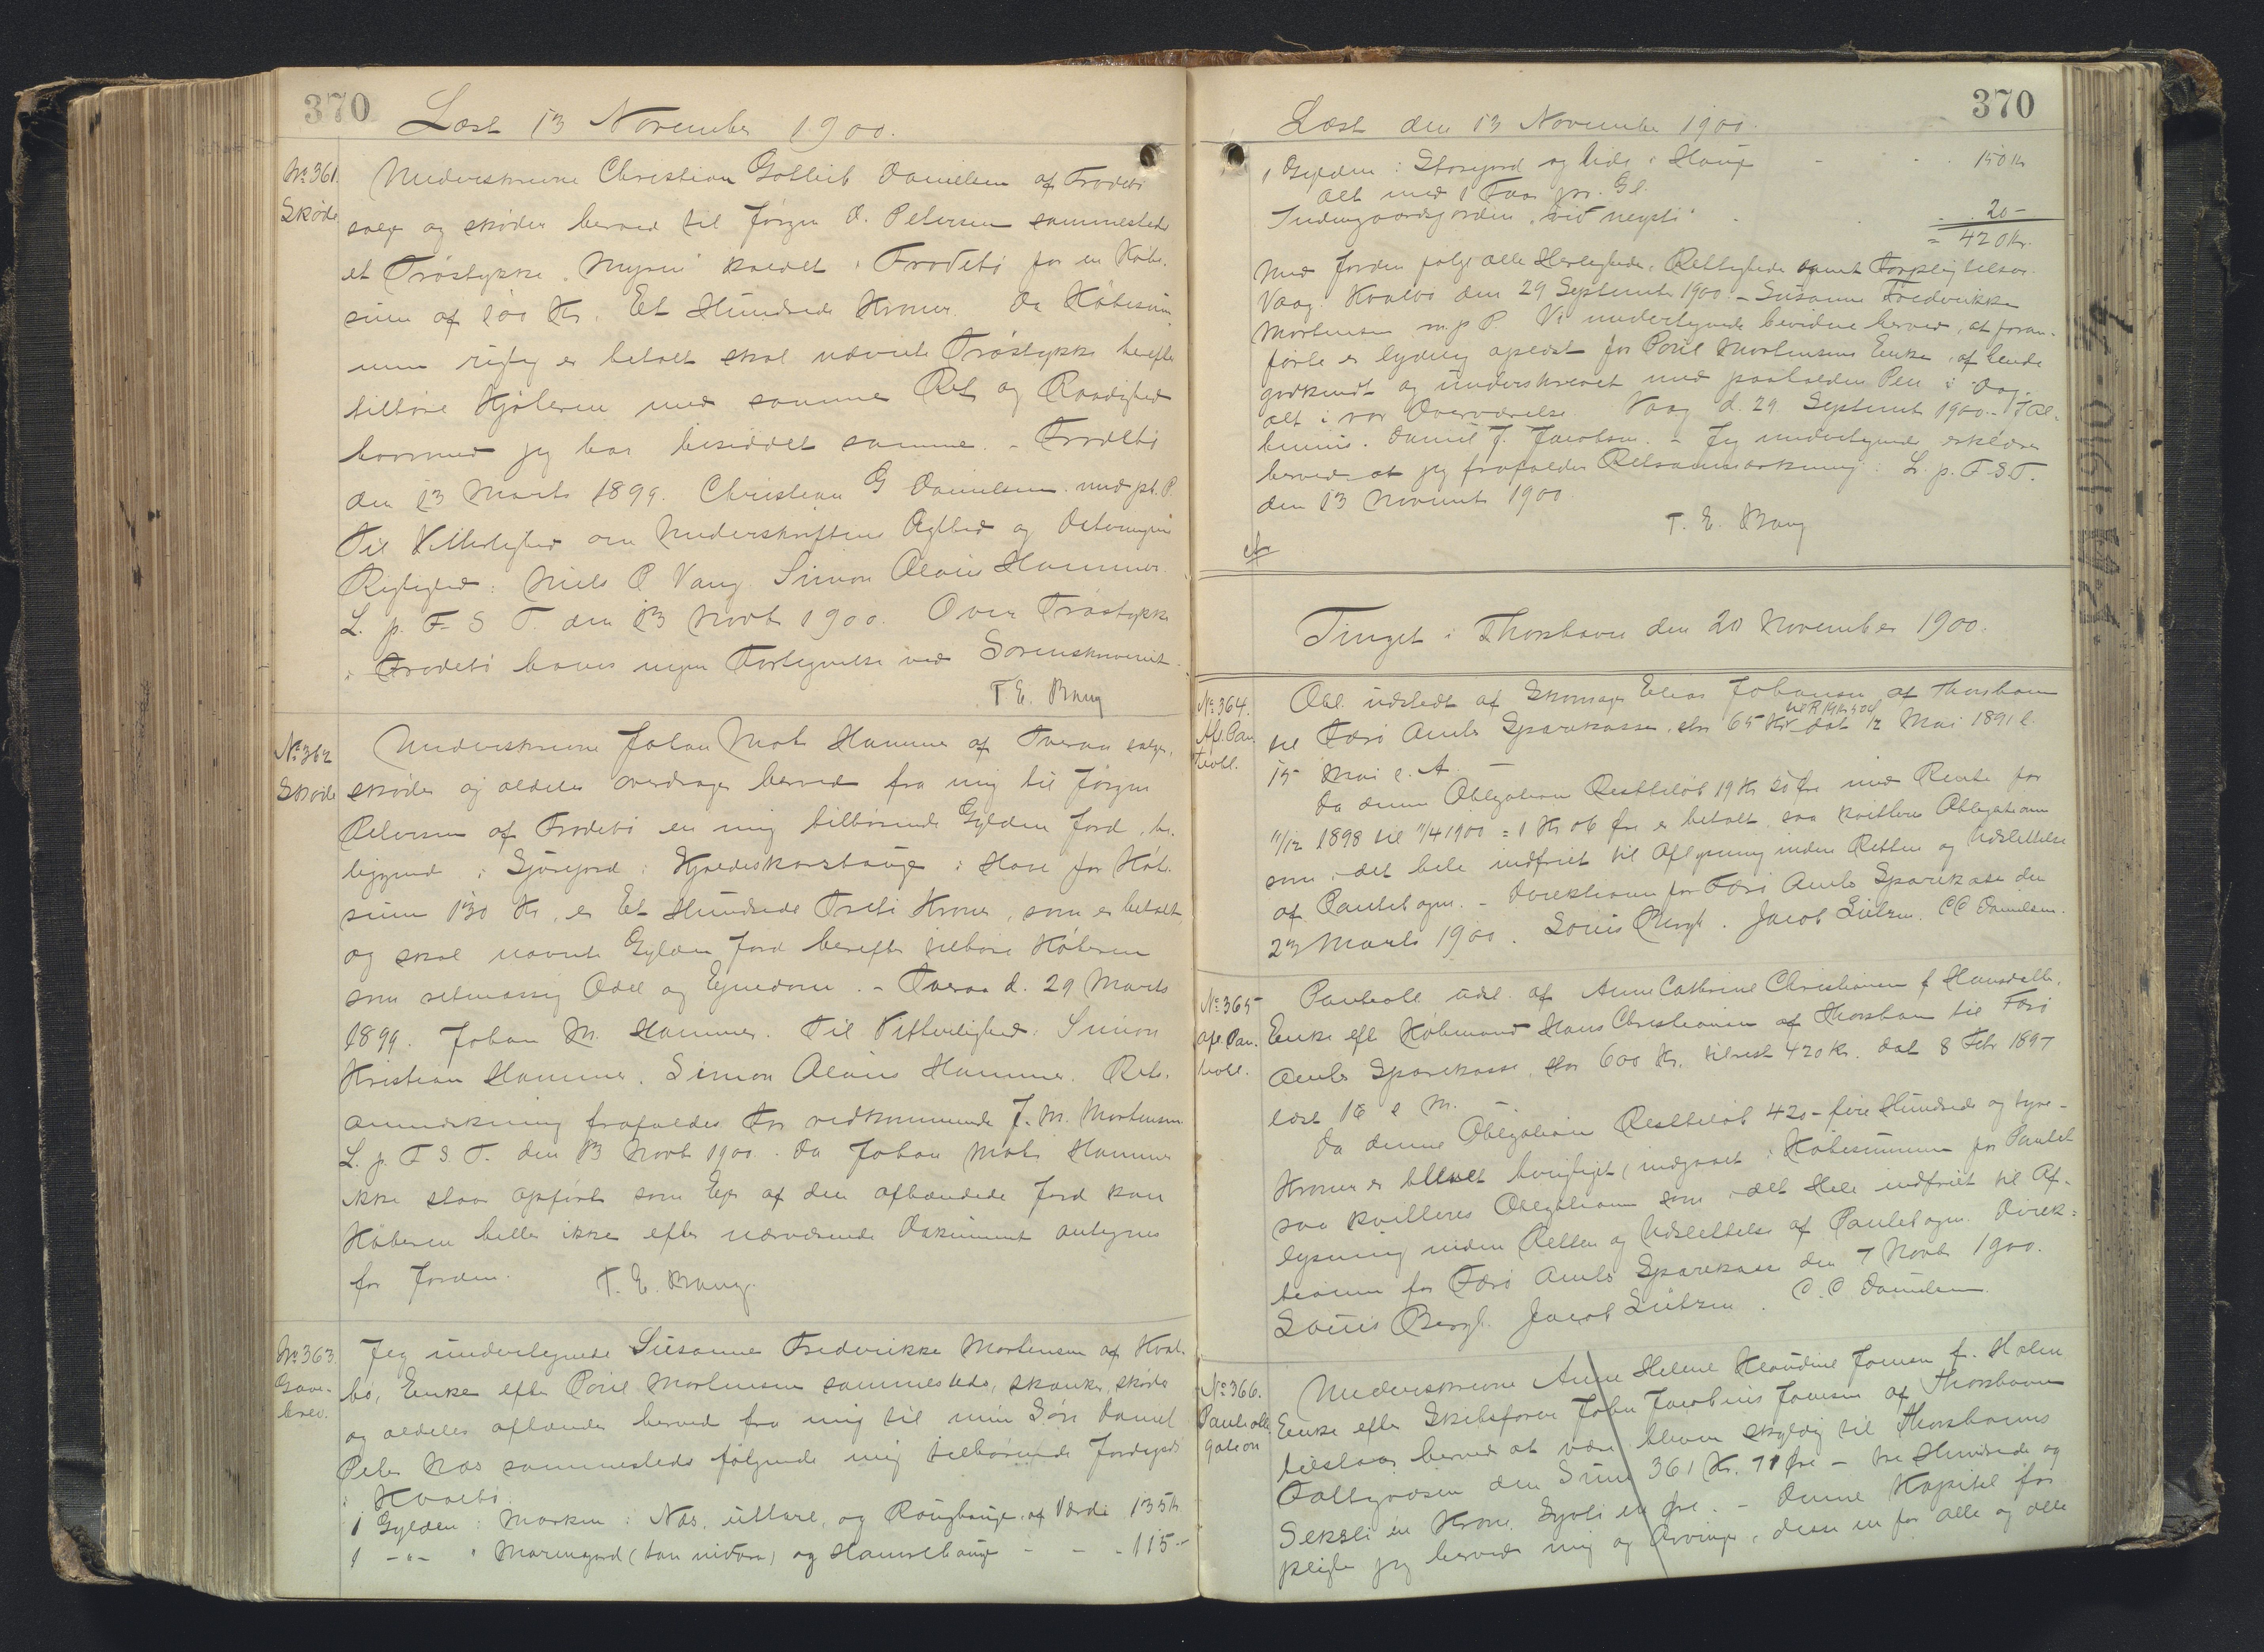 370
Læst 13 November 1900.
No 361.
Skøde
Underskrevne Christian Gotlieb Danielsen af Frodebø
sælger og skøder herved til Jörgen D. Petersen sammesteds
et Tröstykke "Myren" kaldet i Frodebö for en Köbe-
sum af 100 Kr. Et Hundrede Kroner. Da Köbesum
men rigtig er betalt skal nævnte Tröstykke herefter
tilhöre Kjöberen med samme Ret og Raadighed
hvormed jeg har besiddet samme. - Frodebö
den 13 Marts 1899. Christian G Danielsen. med p. P.
Til Vitterlighed om Underskriftens Ægthed og Dateringens
Rigtighed: Niels P Vang. Simon Alavis Hammer.
L. p. F. S T. den 13 Novbr 1900. Over Tröstykke
i Frodebö haves ingen Fortegnelse ved Sorenskriveriet.
T E. Bang
No 362
Skøde
Underskrevne Johan Mots Hammer af Tveraa sælger,
skøder og aldeles overdrager herved fra mig til Jörgen
Petersen af Frodebö en mig tilhörende Gylden Jord, be-
liggende i Gjörejord i Kjældeskarshauge i Hove for Köbe-
sum 130 Kr, er Et Hundrede Treti Kroner, som er betalt,
og skal nævnte Gylden Jord herefter tilhöre Köberen
som retmæssig Odel og Ejendom. - Tveraa d. 29 Marts
1899. Johan M. Hammer. Til Vitterlighed: Simon
Kristian Hammer. Simon Alavis Hammer. Rets-
anmærkning frafaldes for vedkommende J. M. Mortensen.
L. p. F. S. T. den 13 Novbr 1900. Da Johan Mots Hammer
ikke staar opfört som Ejer af den afhændede Jord kan
Köberen heller ikke efter nærværende Dokument antegnes
for Jorden. T. E. Bang.
No 363.
Gave-
brev.
Jeg undertegnede Susanne Frederikke Mortensen af Hval-
bö, Enke efter Poul Mortensen sammesteds, skænker, skøder
og aldeles afhænder herved fra mig til min Sön Daniel
Peter Næs sammesteds følgende mig tilhörende Jordegods
i Hvalbö.
1 Gylden i Marken i Næs, og Rönghauge, af Værdi 135 Kr
1 -"- " Marengard og Hamrehauge - - - 115 -
370
Læst den 13 November 1900.
1 Gylden i Storegard og Lida i Hauge - - - 150 Kr
alt med 1 Faar pr. Gl.
Indengaardsjorden "vid neysti" - - - 20 -
= 420 Kr.
Med Jorden følge alle Herligheder, Rettigheder samt Forpligtelser.
Vaag i Hvalbö den 29 September 1900. - Susanne Frederikke
Mortensen m. p. P. Vi undertegnede bevidne herved, at foran-
förte er lydelig oplæst for Poul Mortensens Enke, af hende
godkendt og underskrevet med paaholden Pen i Dag.
alt i vor Overværelse. Vaag d. 29 Septembr 1900.
Daniel J. Jacobsen. - Jeg undertegnede erklærer
herved at jeg frafalder Retsanmærkning. L. p. F. S T.
den 13 Novembr 1900.
T. E. Bang
Tinget i Thorshavn den 20 November 1900.
No 364.
Afl. Pan
teobl.
Obl. udstedt af Skomager Elias Johansen af Thorshavn
til Færö Amts Sparekasse, stor 65 Kr dat 12 Mai 1891 l.
15 Mai s. A. -
Da denne Obligations Restbelöb 19 Kr 50 Øre med Rente for
11/12 1898 til 11/4 1900 = 1 Kr 06 Øre er betalt saa kvitteres Obligationen
som i det hele indfriet til Aflysning inden Retten og Udslettelse
af Pantebogen. - Direktionen for Færö Amts Sparekasse den
23 Marts 1900. Louis Bergh. Jacob Lützen. C C Danielsen.
No 365
Afl. Pan-
teobl.
Panteobl. udst. af Anne Cathrine Christiansen f Hansdatter,
Enke eft Köbmand Hans Christiansen af Thorshavn til Færö
Amts Sparekasse, stor 600 Kr. tilrest 420 Kr. dat 8 Febr 1897
læst 16 s M. -
Da denne Obligations Restbelöb 420 - fire Hundrede og tyve -
Kroner er blevet berigtiget, indgaaet i Köbesummen for Pantet
saa kvitteres Obligationen som i det Hele indfriet til Af-
lysning inden Retten og Udslettelse af Pantebogen. Direk-
tionen for Færö Amts Sparekasse den 7 Novbr 1900.
Louis Bergh. Jacob Lützen. C. C Danielsen.
No 366.
Panteobli
gation
Underskrevne Anne Helene Klaudine Joensen f. Holm
Enke efter Skibsförer John Jacobius Joensen af Thorshavn
tilstaar herved at være bleven skyldig til Thorshavns
Fattigvæsen den Sum 361 Kr. 71 Øre - tre Hundrede og
Seksti en Krone Syvti en Øre. - Denne Kapital for
pligter jeg herved mig og Arvinger, een for alle og alle